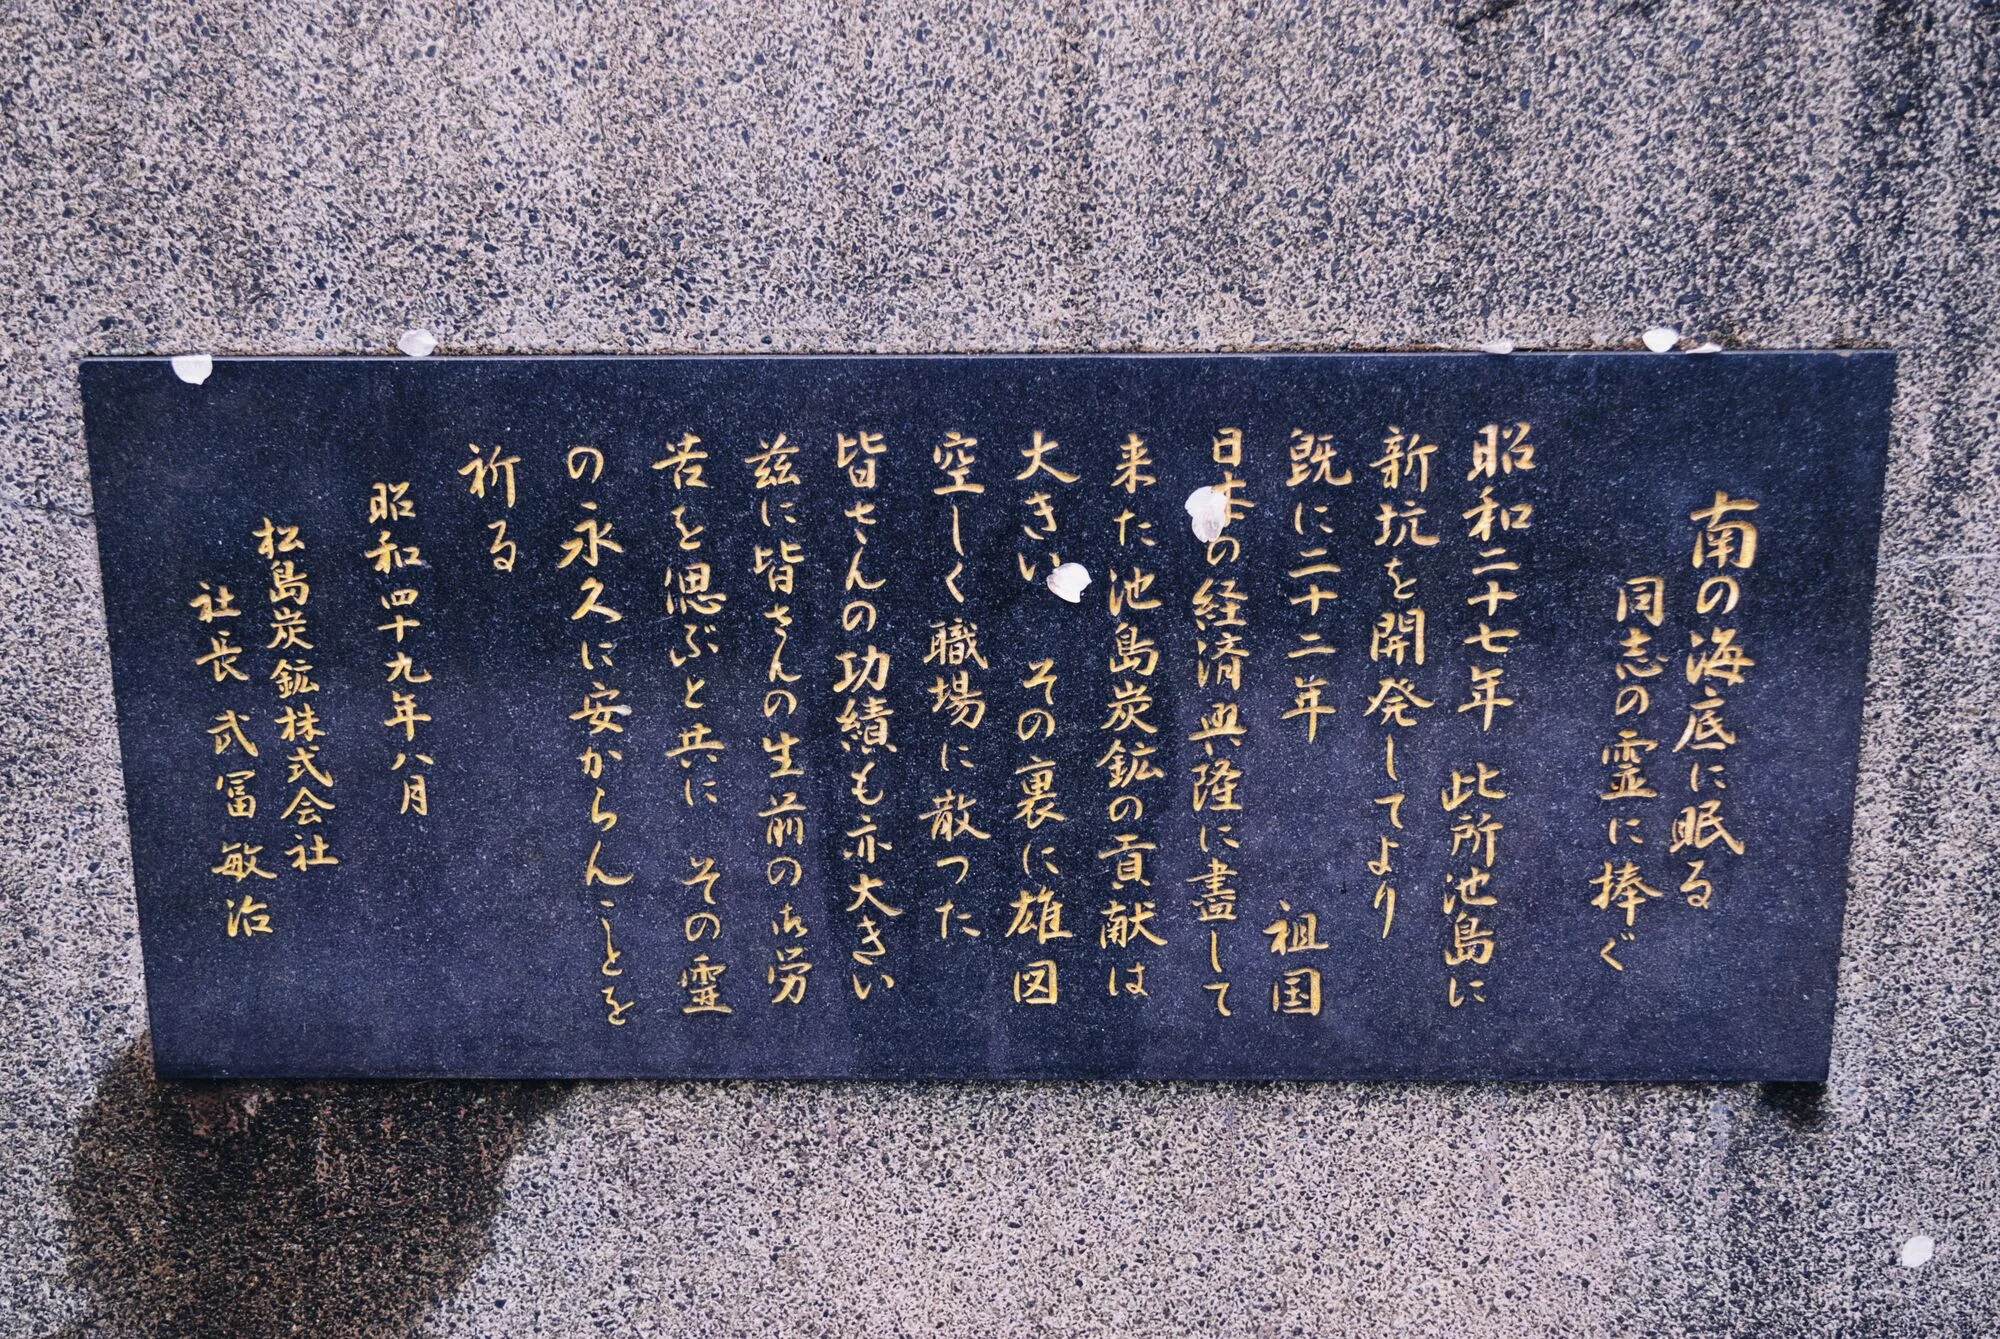 南の海底に眠る
同志の霊に捧ぐ
昭和二十七年 此所池島に
新坑を開発してより
既に二十二年 祖国
日本の経済興隆に盡して
来た池島炭鉱の貢献は
大きい その裏に雄図
空しく職場に散った
皆さんの功績も亦大きい
茲に皆さんの生前の御労
苦を偲ぶと共に その霊
の永久に安からんことを
祈る
昭和四十九年八月
松島炭鉱株式会社
社長 武冨敏治